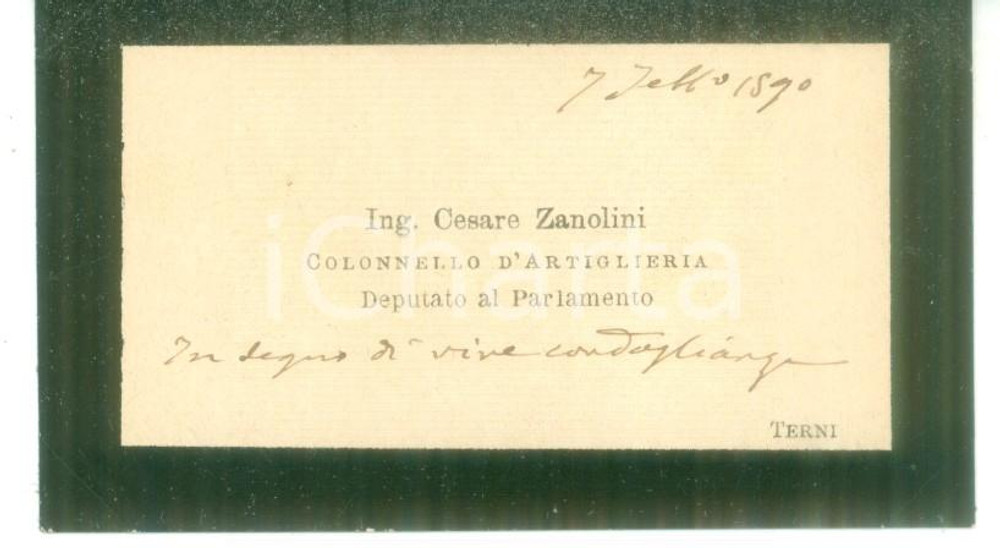 7 Febbº 1890
Ing. Cesare Zanolini
COLONNELLO D'ARTIGLIERIA
Deputato al Parlamento
In segno di vive condoglianze
TERNI
iCharta